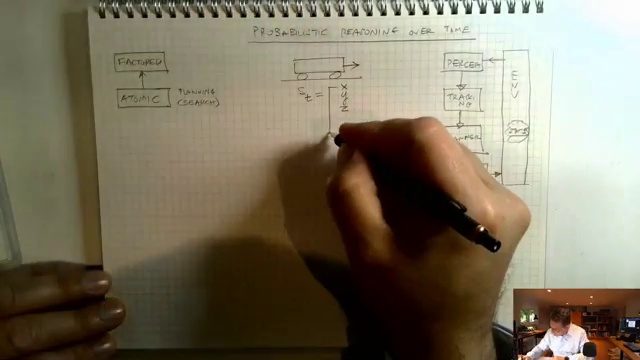 PROBABILISTIC REASONING OVER TIME
FACTORED
ATOMIC
PLANNING
(SEARCH)
St =
x
y
z
PERCEP
TRACK
ING
ENV